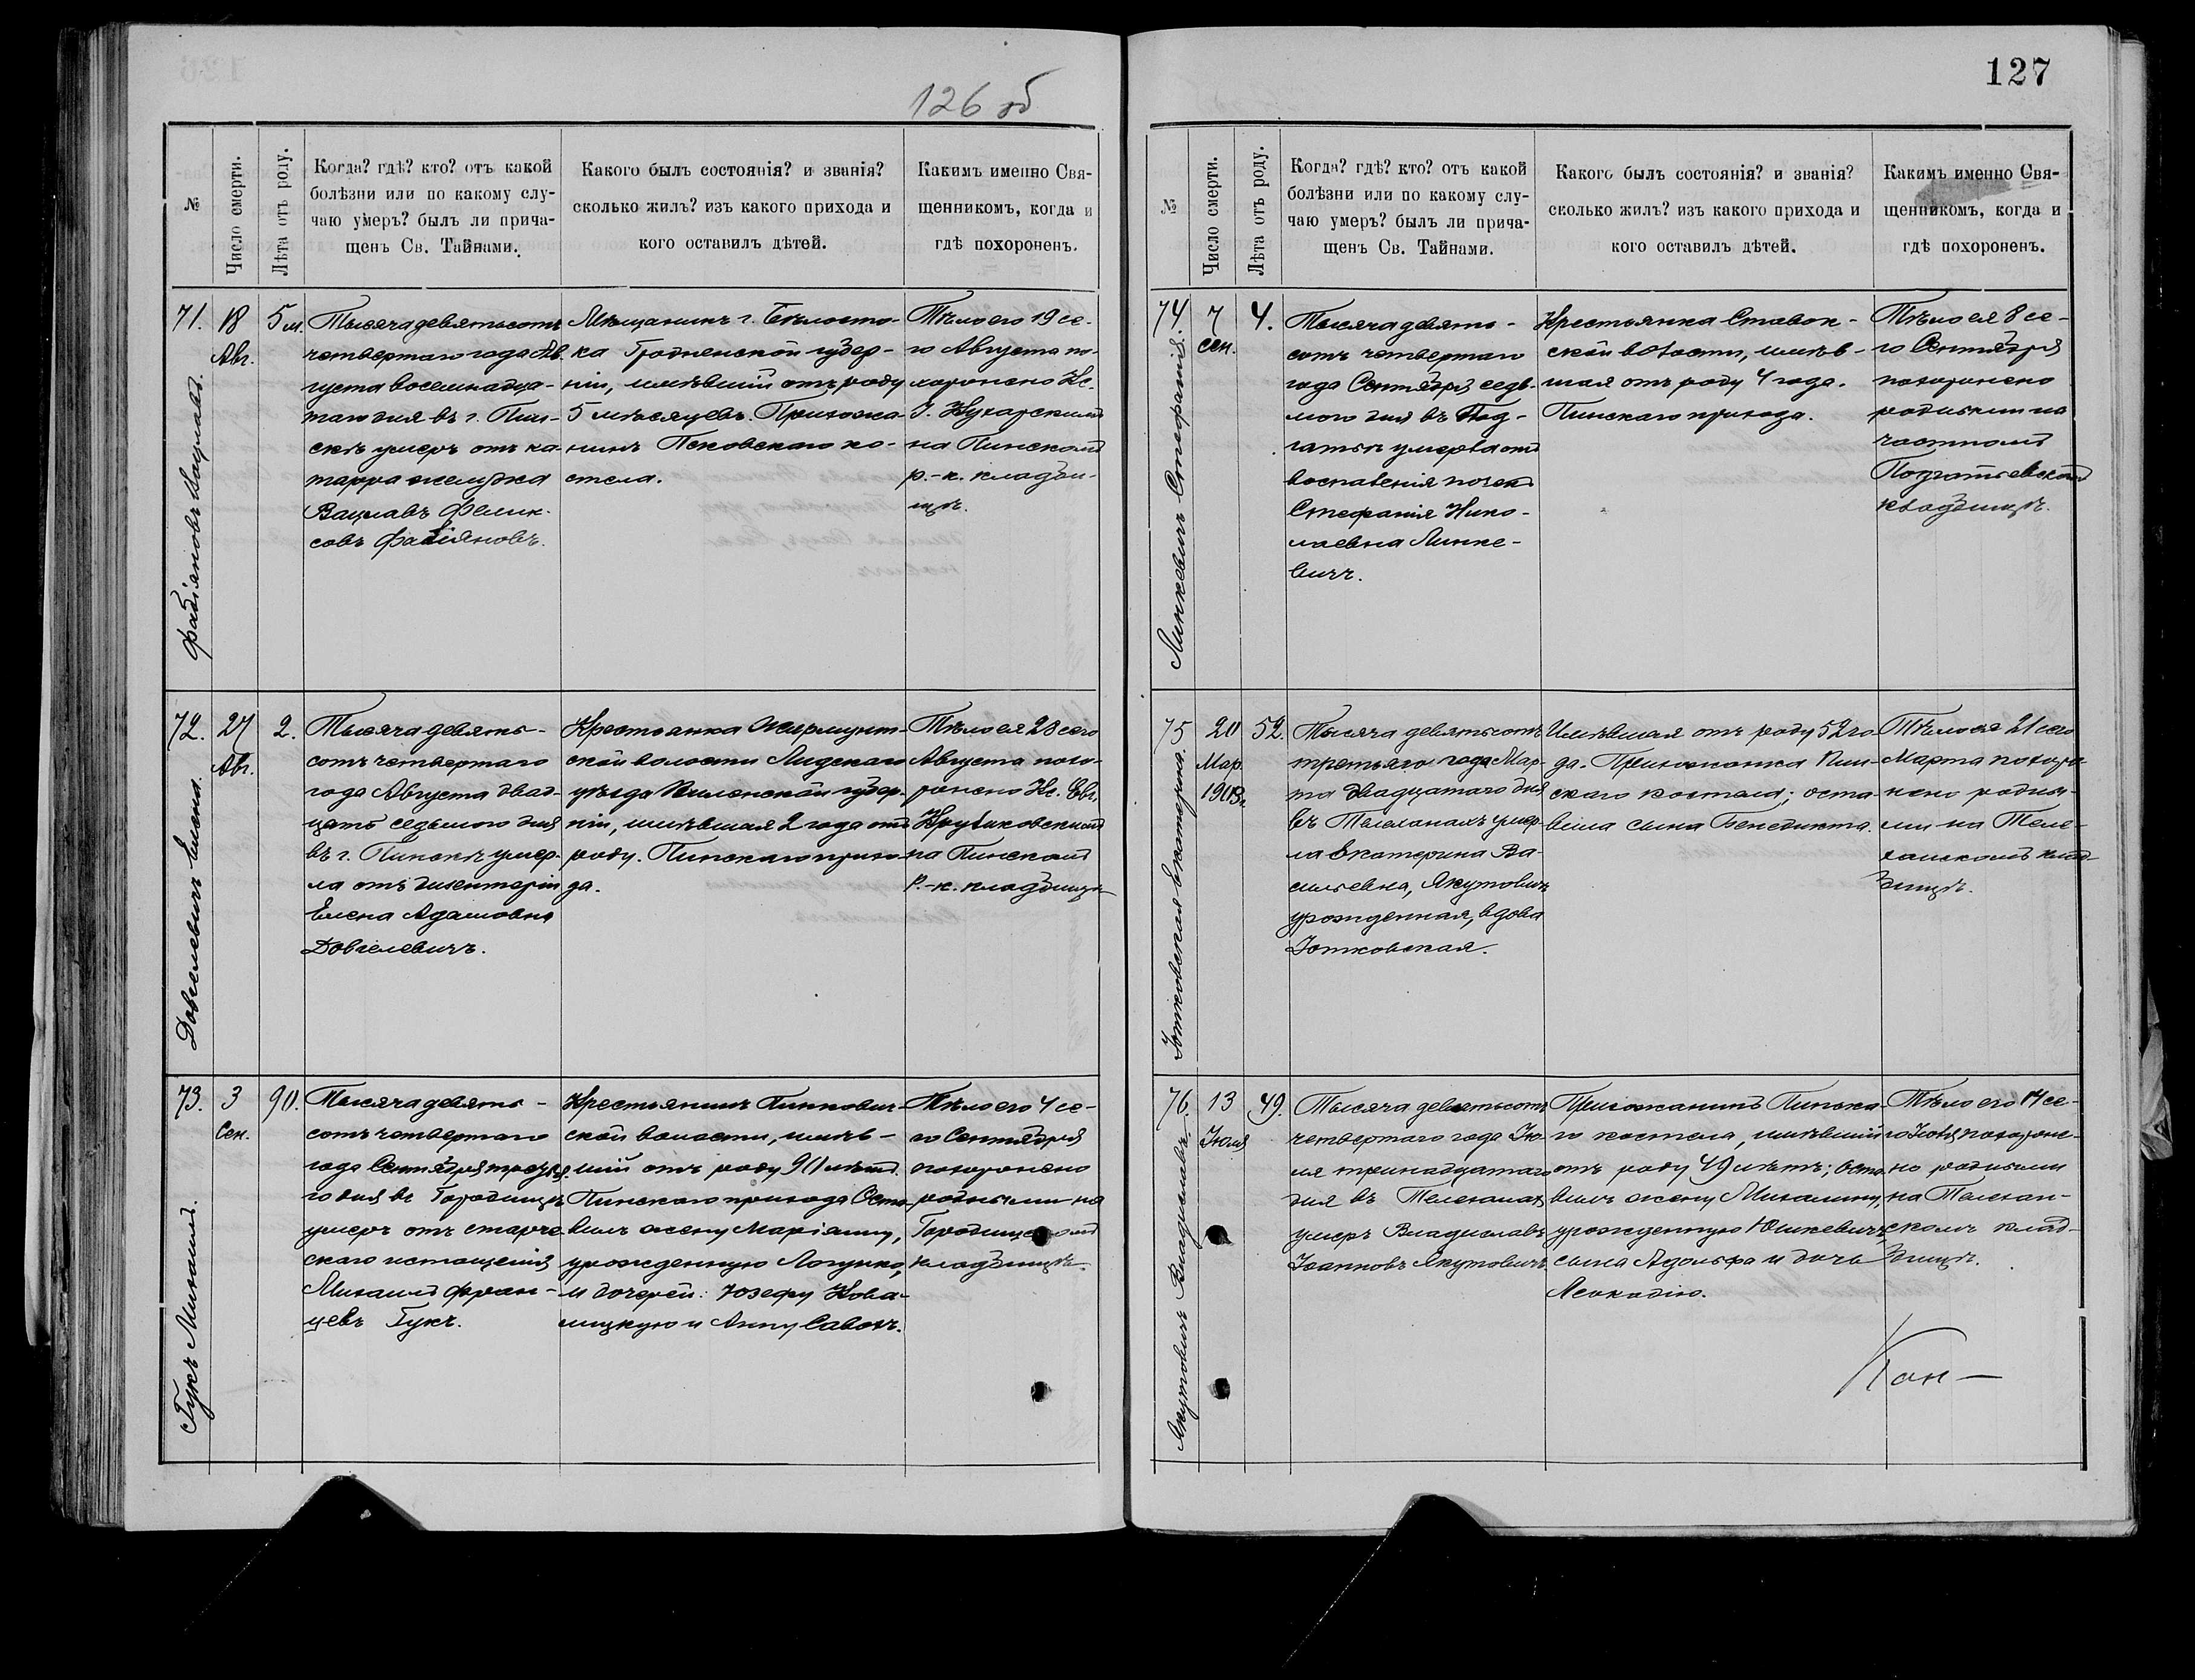 126 об
№
Число смерти.
Лѣта отъ роду.
Когда? гдѣ? кто? отъ какой
болѣзни или по какому слу-
чаю умеръ? былъ ли прича-
щенъ Св. Тайнами.
Какого былъ состоянія? и званія?
сколько жилъ? изъ какого прихода и
кого оставилъ дѣтей.
Какимъ именно Свя-
щенникомъ, когда и
гдѣ похороненъ.
71.
Фабіяновъ Вацлавъ.
18
Авг.
5 м.
Тысяча девятьсотъ
четвертаго года Ав-
густа восемнадца-
таго дня въ г. Пин-
скѣ умеръ отъ ка-
тарра желудка
Вацлавъ Фелик-
совъ Фабіяновъ.
Мѣщанинъ г. Бѣлосто-
ка Гродненской губер-
ніи, имѣвшій отъ роду
5 мѣсяцевъ. Прихожа-
нинъ Псковскаго ко-
стела.
Тѣло его 19 се-
го Августа по-
хоронено Кс.
І. Кухарскимъ
на Пинскомъ
р.-к. кладби-
щѣ.
72.
Довгелевичъ Елена.
27
Авг.
2.
Тысяча девять-
сотъ четвертаго
года Августа двад-
цать седьмого дня
въ г. Пинскѣ умер-
ла отъ дизентеріи
Елена Адамовна
Довгелевичъ.
Крестьянка Жирмунт-
ской волости Лидскаго
уѣзда Виленской губер-
ніи, имѣвшая 2 года отъ
роду. Пинскаго прихо-
да.
Тѣло ея 28 сего
Августа похо-
ронено Кс. Евг.
Круликовскимъ
на Пинскомъ
р.-к. кладбищѣ
73.
Гукъ Михаилъ.
3
Сен.
90.
Тысяча девять-
сотъ четвертаго
года Сентября третья-
го дня въ Городищѣ
умеръ отъ старче-
скаго истощенія
Михаилъ Фран-
цевъ Гукъ.
Крестьянинъ Пинкович-
ской волости, имѣв-
шій отъ роду 90 лѣтъ.
Пинскаго прихода. Оста-
вилъ жену Маріанну,
урожденную Логунко,
и дочерей: Юзефу Кова-
лицкую и Анну Савонъ.
Тѣло его 4 се-
го Сентября
похоронено
родными на
Городищскомъ
кладбищѣ.
127
№
Число смерти.
Лѣта отъ роду.
Когда? гдѣ? кто? отъ какой
болѣзни или по какому слу-
чаю умеръ? былъ ли прича-
щенъ Св. Тайнами.
Какого былъ состоянія? и званія?
сколько жилъ? изъ какого прихода и
кого оставилъ дѣтей.
Какимъ именно Свя-
щенникомъ, когда и
гдѣ похороненъ.
74.
Линкевичъ Стефанія.
7
Сен.
4.
Тысяча девять-
сотъ четвертаго
года Сентября седь-
мого дня въ Под-
гатьѣ умерла отъ
воспаленія почекъ
Стефанія Нико-
лаевна Линке-
вичъ.
Крестьянка Ставок-
ской волости, имѣв-
шая отъ роду 4 года.
Пинскаго прихода.
Тѣло ея 8 се-
го Сентября
похоронено
родными на
частномъ
Подгатьевскомъ
кладбищѣ.
75
Ютковская Екатерина.
20
Мар.
1903 г.
52.
Тысяча девятьсотъ
третьяго года Мар-
та двадцатаго дня
въ Телеханахъ умер-
ла Екатерина Ва-
сильевна, Якутовичъ
урожденная, вдова
Ютковская.
Имѣвшая отъ роду 52 го-
да. Прихожанка Пин-
скаго костела; оста-
вила сына Бенедикта.
Тѣло ея 21 сего
Марта похоро-
нено родны-
ми на Теле-
ханскомъ клад-
бищѣ.
76.
Якутовичъ Владиславъ.
13
Іюля
49.
Тысяча девятьсотъ
четвертаго года Ію-
ля тринадцатаго
дня въ Телеханахъ
умеръ Владиславъ
Іоанновъ Якутовичъ
Прихожанинъ Пинска-
го костела, имѣвшій
отъ роду 49 лѣтъ; оста-
вилъ жену Михалину,
урожденную Юшкевичъ,
сына Адольфа и дочь
Леокадію.
Тѣло его 14 се-
го Іюля похороне-
но родными
на Телехан-
скомъ клад-
бищѣ.